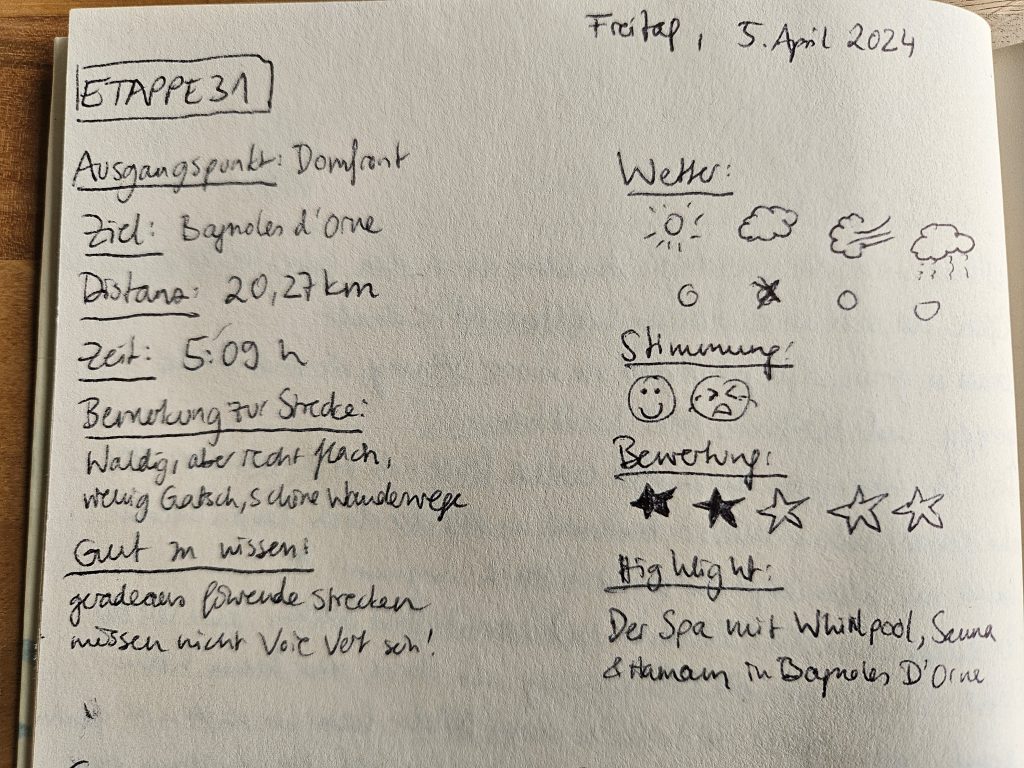 Freitag, 5. April 2024
ETAPPE 31
Ausgangspunkt: Domfront
Ziel: Bagnoles d'Orne
Distanz: 20,27 km
Zeit: 5:09 h
Bemerkung zur Strecke:
Waldig, aber recht flach,
wenig Gatsch, schöne Wanderwege
Gut zu wissen:
geradeaus führende Strecken
müssen nicht Voie Vert sein!
Wetter:
Stimmung:
Bewertung:
Highlight:
Der Spa mit Whirlpool, Sauna
& Hamam in Bagnoles D'Orne